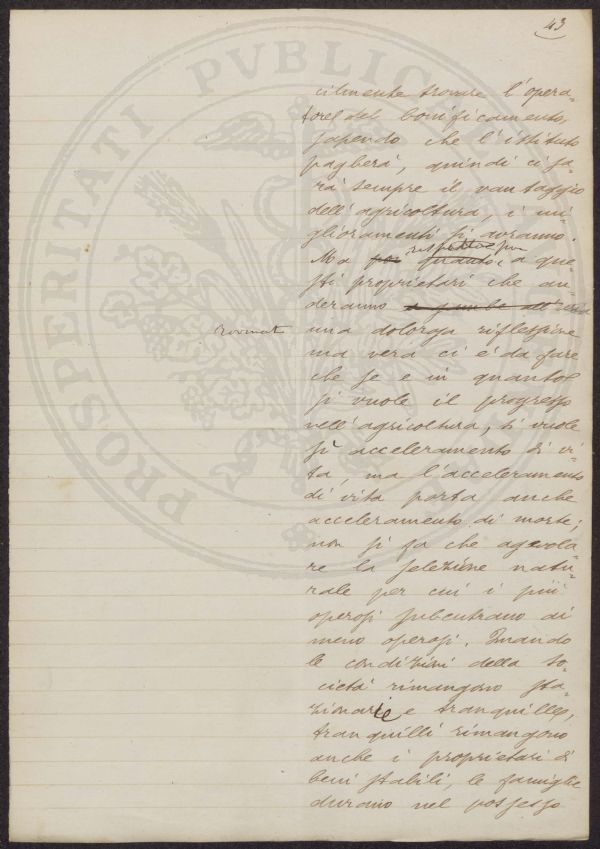 43
cilmente trovare l'opera-
tore del bonificamento,
sapendo che l'istituto
pagherà, quindi ci sa-
rà sempre il vantaggio
dell'agricoltura, i mi-
glioramenti si avranno.
rispetto e
Ma per quanto a que-
sti proprietari che an-
deranno
rovinati
una dolorosa riflessione
ma vera ci è da fare
che se e in quanto
si vuole il progresso
nell'agricoltura, si vuole
sì acceleramento di vi-
ta, ma l'acceleramento
di vita porta anche
acceleramento di morte;
non si fa che agevola-
re la selezione natu-
rale per cui i più
operosi subentrano ai
meno operosi. Quando
le condizioni della so-
cietà rimangono sta-
zionarie e tranquille,
tranquilli rimangono
anche i proprietari di
beni stabili, le famiglie
durano nel possesso
PROSPERITATI PVBLICAE